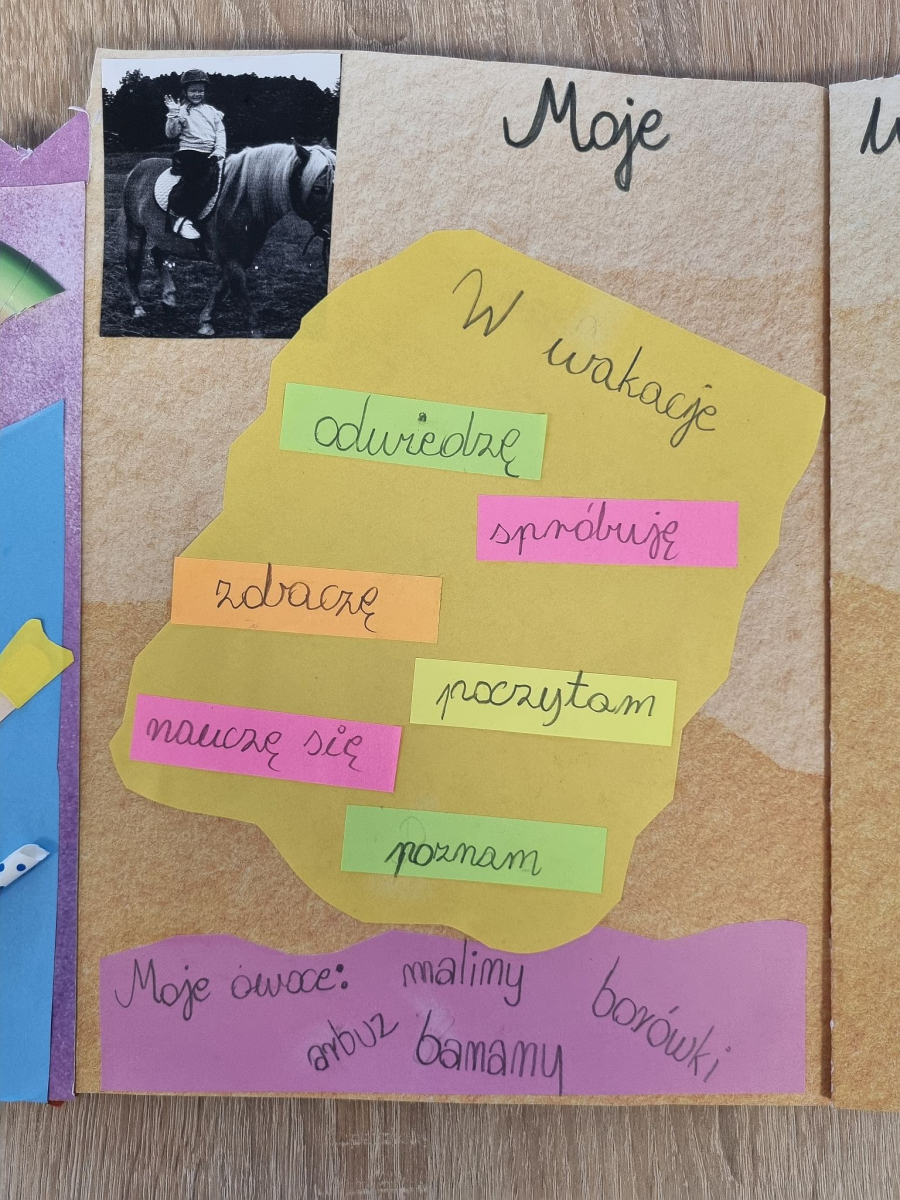 Moje
W wakacje
odwiedzę
spróbuję
zobaczę
poczytam
nauczę się
poznam
Moje owoce: maliny borówki
arbuz banany